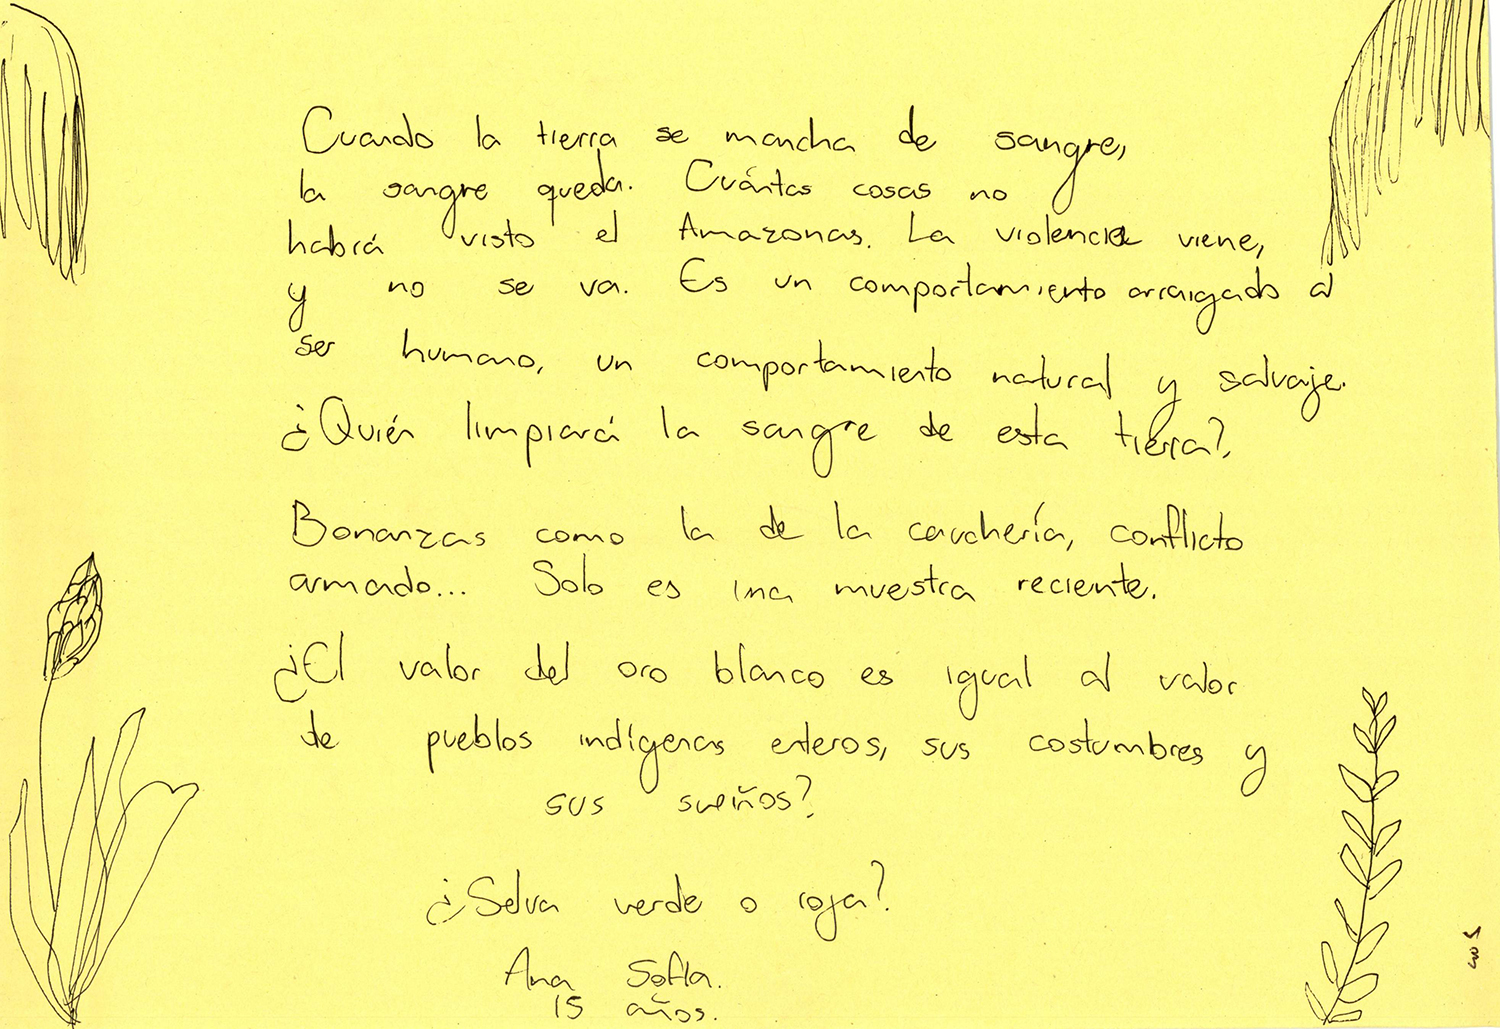 Cuando la tierra se mancha de sangre,
la sangre queda. Cuántas cosas no
habrá visto el Amazonas. La violencia viene,
y no se va. Es un comportamiento arraigado al
ser humano, un comportamiento natural y salvaje.
¿Quién limpiará la sangre de esta tierra?
Bonanzas como la de la cauchería, conflicto
armado... Solo es una muestra reciente.
¿El valor del oro blanco es igual al valor
de pueblos indígenas enteros, sus costumbres y
sus sueños?
¿Selva verde o roja?
Ana Sofía.
15 años.